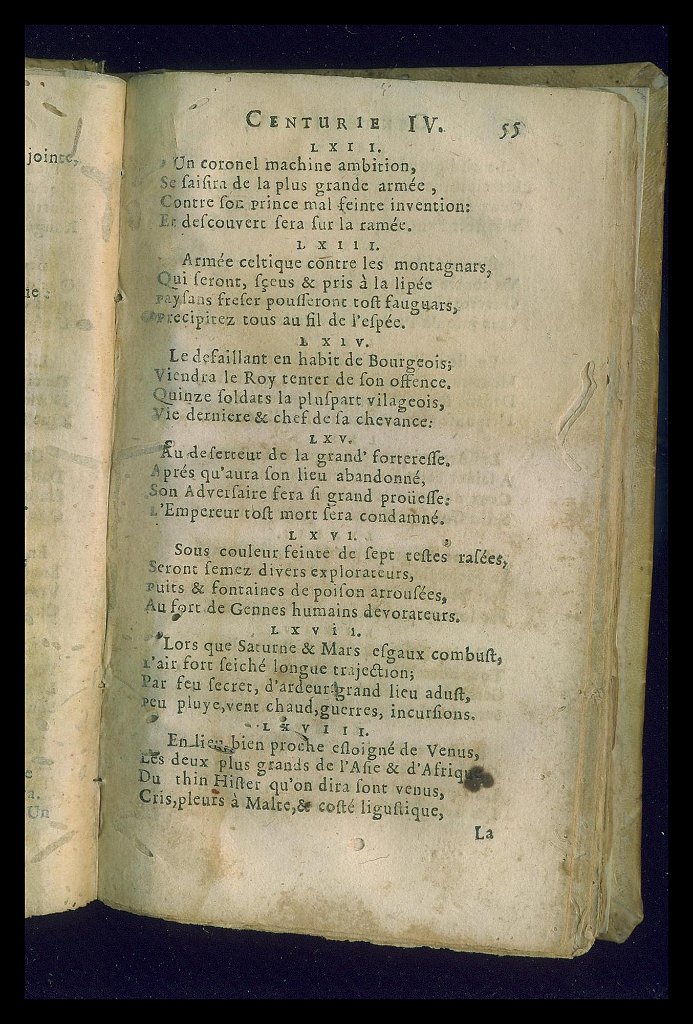 jointe,
ie:
a.
Un
CENTURIE IV. 55
LXII.
Un coronel machine ambition,
Se saiſira de la plus grande armée,
Contre ſon prince mal feinte invention:
Et deſcouvert ſera ſur la ramée.
LXIII.
Armée celtique contre les montagnars,
Qui ſeront, ſçeus & pris à la lipée
Paysans freſer pouſſeront toſt fauguars,
Precipitez tous au fil de l'eſpée.
LXIV.
Le defaillant en habit de Bourgeois;
Viendra le Roy tenter de ſon offence.
Quinze ſoldats la pluſpart vilageois,
Vie derniere & chef de ſa chevance:
LXV.
Au deſerteur de la grand' fortereſſe.
Aprés qu'aura ſon lieu abandonné,
Son Adverſaire fera ſi grand proüeſſe:
L'Empereur toſt mort ſera condamné.
LXVI.
Sous couleur feinte de ſept teſtes raſées,
Seront ſemez divers explorateurs,
Puits & fontaines de poiſon arrouſées,
Au fort de Gennes humains devorateurs.
LXVII.
Lors que Saturne & Mars eſgaux combuſt,
L'air fort ſeiché longue trajection;
Par feu ſecret, d'ardeur grand lieu aduſt,
Peu pluye, vent chaud, guerres, incurſions.
LXVIII.
En lieu, bien proche eſloigné de Venus,
Les deux plus grands de l'Aſie & d'Afrique
Du thin Hiſter qu'on dira ſont venus,
Cris, pleurs à Malte, & coſté liguſtique,
La